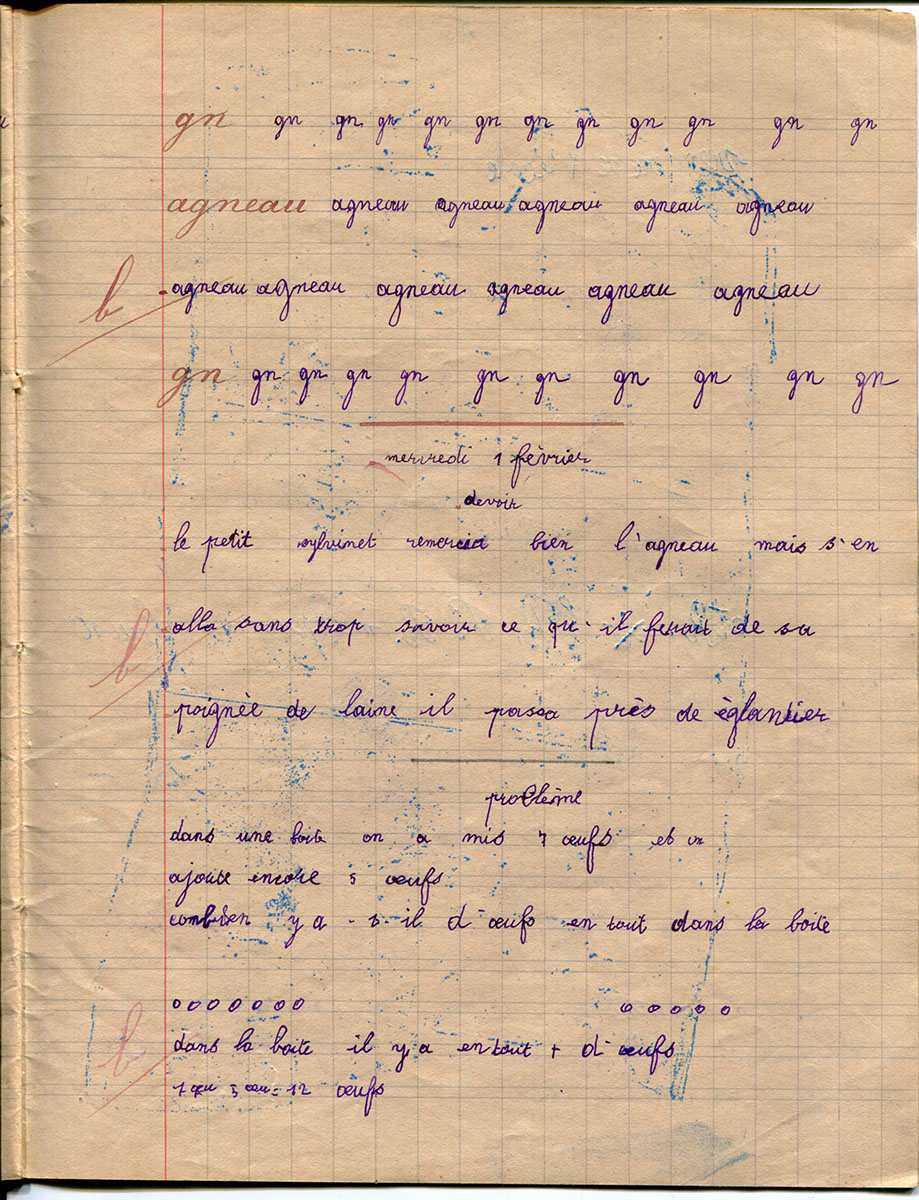 gn gn gn gn gn gn gn gn gn gn gn gn
agneau agneau agneau agneau agneau agneau
b agneau agneau agneau agneau agneau agneau
gn gn gn gn gn gn gn gn gn gn gn
mercredi 1 février
devoir
le petit sylvinet remercia bien l'agneau mais s'en
b alla sans trop savoir ce qu'il ferait de sa
poignée de laine il passa près de églantier
problème
dans une boite on a mis 7 œufs et on
ajoute encore 5 œufs
combien y a-t-il d'œufs en tout dans la boite
o o o o o o o o o o o o
b dans la boite il y a en tout + d'œufs
7 œu 5 œu = 12 œufs